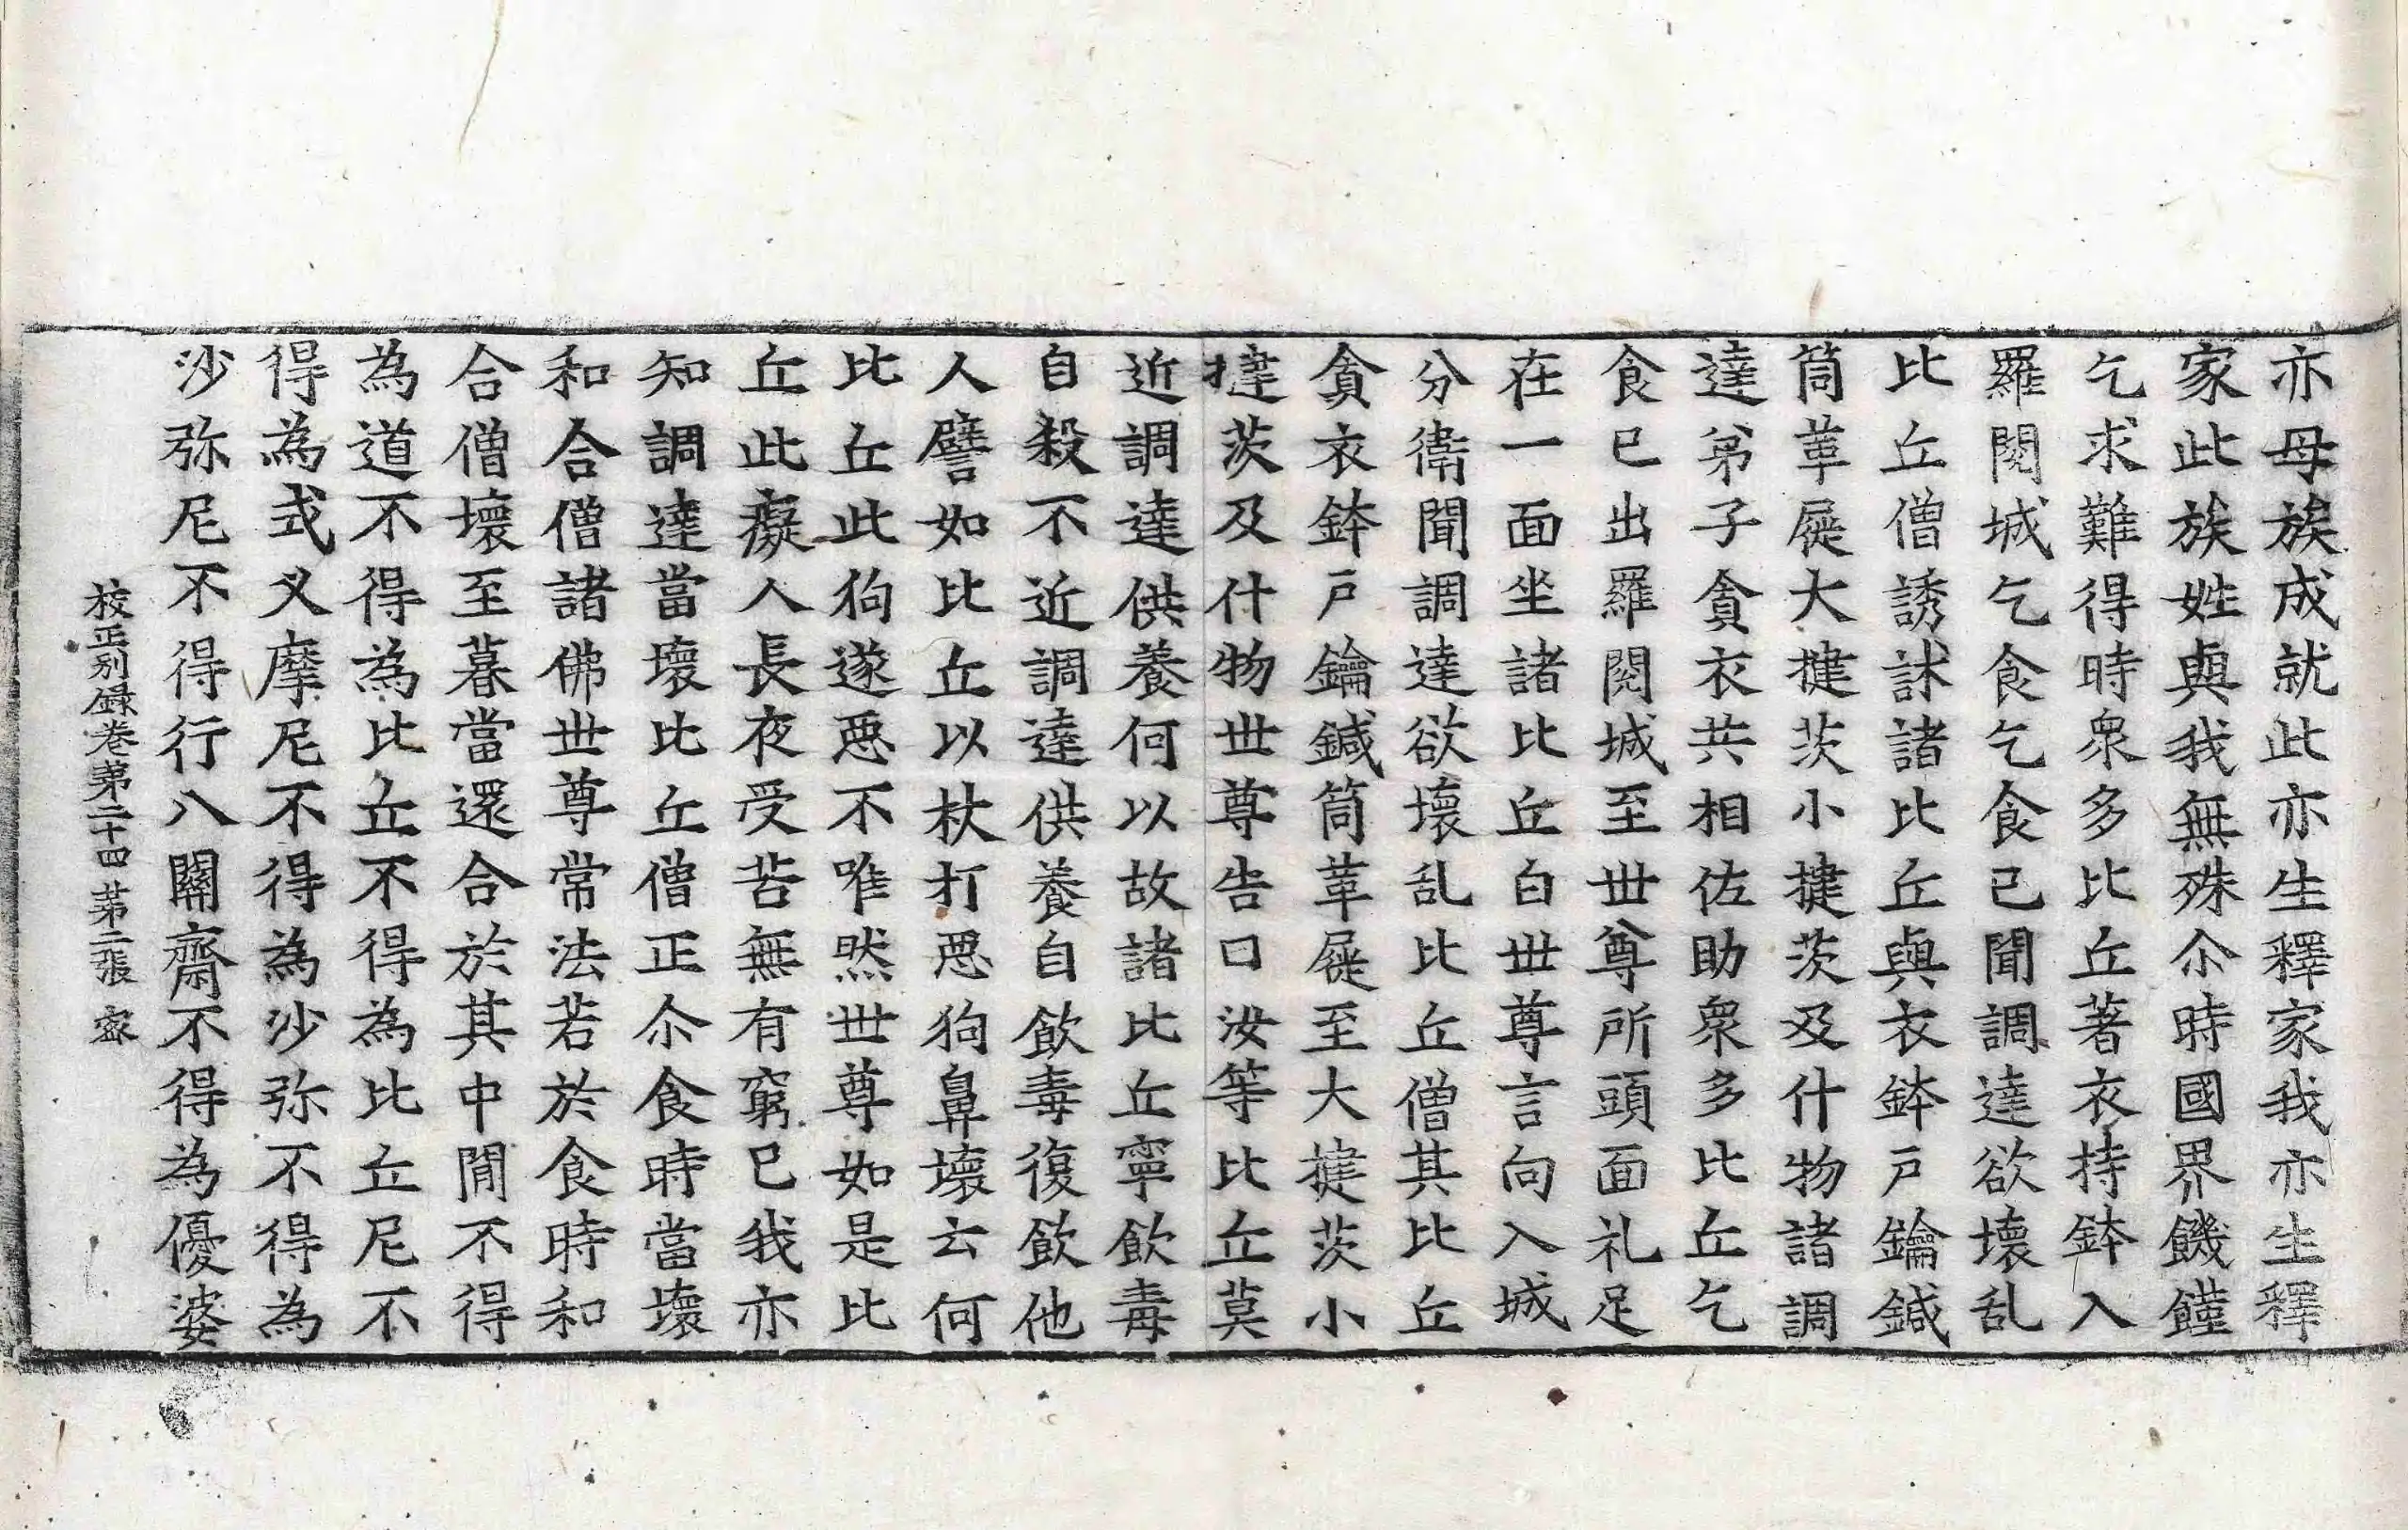 亦母族成就此亦生釋家我亦生釋
家此族姓與我無殊尒時國界饑饉
乞求難得時衆多比丘著衣持鉢入
羅閱城乞食乞食已聞調達欲壞乱
比丘僧誘訹諸比丘與衣鉢戶鑰鍼
筒革屣大揵茨小揵茨及什物諸調
達弟子貪衣共相佐助衆多比丘乞
食已出羅閱城至世尊所頭面礼足
在一面坐諸比丘白世尊言向入城
分衛聞調達欲壞乱比丘僧其比丘
貪衣鉢戶鑰鍼筒革屣至大揵茨小
揵茨及什物世尊告曰汝等比丘莫
近調達供養何以故諸比丘寧飲毒
自殺不近調達供養自飲毒復飲他
人譬如比丘以杖打惡狗鼻壞云何
比丘此狗遂惡不唯然世尊如是比
丘此癡人長夜受苦無有窮已我亦
知調達當壞比丘僧正尒食時當壞
和合僧諸佛世尊常法若於食時和
合僧壞至暮當還合於其中閒不得
為道不得為比丘不得為比丘尼不
得為式叉摩尼不得為沙弥不得為
沙弥尼不得行八關齋不得為優婆
校正别録卷第二十四 第二張 宓